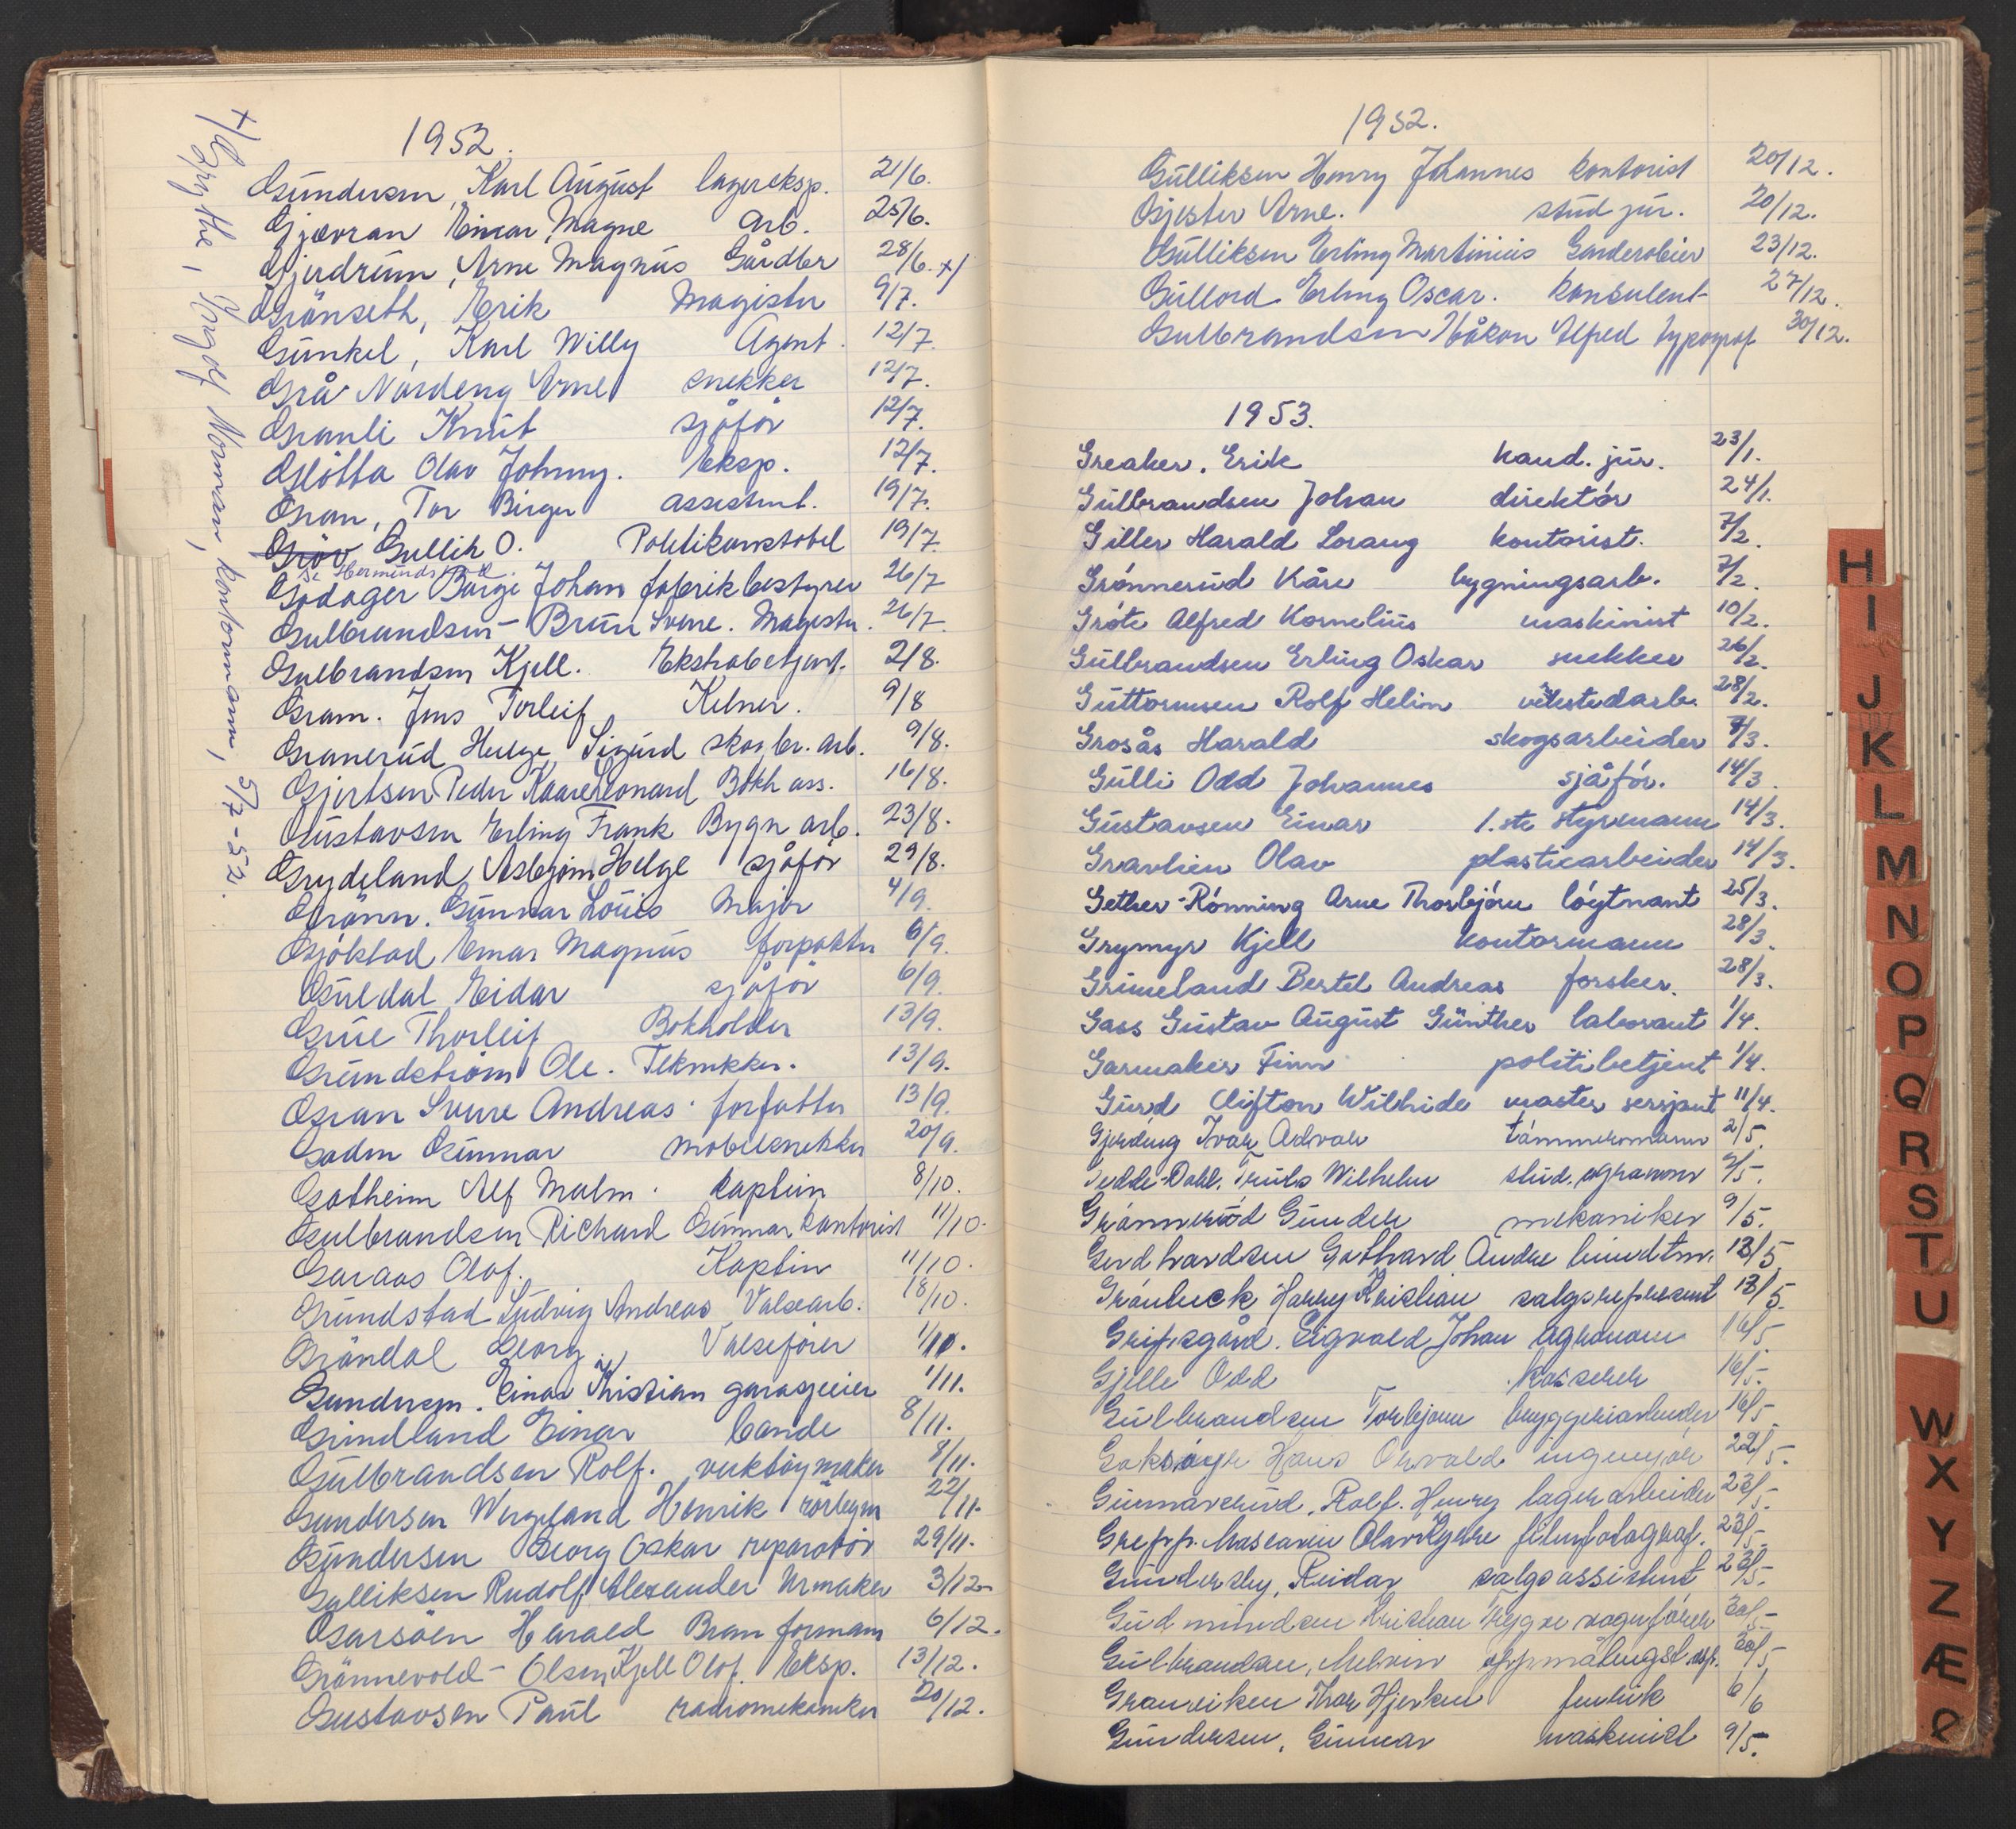 1952.
Gundersen, Karl August lagereksp. 21/6.
Gjævran Einar Magne Arb. 25/6.
Gjerdrum, Arne Magnus Gårdbr 28/6. x/
Grönseth, Erik Magister 9/7.
Gunkel, Karl Willy Agent. 12/7.
Grå Nordeng Arne snekker 12/7.
Granli Knut sjåför 12/7.
Glötta Olav Johnny. Eksp. 12/7.
Gran, Tor Birger assistent. 19/7.
Gröv Gullik O. Politikonstabel 19/7.
Godager Börge Johan fabrikbestyrer 26/7
Gulbrandsen-Brun Sverre. Magister. 26/7.
Gulbrandsen Kjell. Ekstrabetjent. 2/8.
Gram. Jens Torleif Kelner. 9/8
Granerud Helge Sigurd skogbr. arb. 9/8.
Gjertsen Peder Kaare Leonard Bokh ass. 16/8.
Gustavsen Erling Frank Bygn arb. 23/8.
Grydeland Asbjørn Helge sjåför 29/8.
Grönn. Gunnar Louis Major 4/9.
Gjökstad Einar Magnus forpakter 6/9.
Guldal Eidar sjåför 6/9.
Grue Thorleif Bokholder 13/9.
Grundström Ole. Tekniker. 13/9.
Gran Sverre Andreas. forfatter 13/9.
Gaden Gunnar möbelsnekker 20/9.
Gotheim Alf Malm. kaptein 8/10.
Gulbrandsen Richard Gunnar kontorist 11/10.
Garaas Olaf. Kaptein 11/10.
Grundstad Ludvig Andreas Valsearb. 18/10.
Gröndal Georg. Valseförer 1/10.
Gundersen. Einar Kristian garasjeeier 1/11.
Grindland Einar bonde 8/11.
Gulbrandsen Rolf. verktöymaker 8/11.
Gundersen Wergeland Henrik rörlegger 22/11.
Gundersen Georg Oskar reparatör 29/11.
Gulliksen Rudolf Alexander Urmaker 3/12.
Garsöen Harald Bram formann 6/12.
Grönnevold-Olsen Kjell Olof. Eksp. 13/12.
Gustavsen Paul radiomekaniker 20/12.
x/ Grythe, Herlof Norman, kontormann, 5/7-52.
1952.
Gulliksen Henry Johannes kontorist 20/12.
Gjester Arne. stud jur. 20/12.
Gulliksen Erling Martinius Garderobeier 23/12.
Gullord Erling Oscar. konsulent 27/12.
Gulbrandsen Håkon Alfred typograf 30/12.
1953.
Greaker, Erik kand. jur. 23/1.
Gulbrandsen Johan direktór 24/1.
Giller Harald Lorang kontorist. 7/2.
Grónnerud Kåre bygningsarb. 7/2.
Gróte Alfred Kornelius maskinist 10/2.
Gulbrandsen Erling Oskar snekker 26/2.
Guttormsen Rolf Helim verkstedarb. 28/2.
Grosås Harald skogsarbeider 7/3.
Gulli Odd Johannes sjåfór. 14/3.
Gustavsen Einar 1.ste styrmann 14/3.
Gravlien Olav plasticarbeider 14/3.
Gether-Rónning Arne Thorbjórn lóytnant 25/3.
Grymyr Kjell kontormann 28/3.
Grimeland Bertel Andreas forsker. 28/3.
Gass Gustav August Günther laborant 1/4.
Garmaker Finn politibetjent 1/4.
Gurd Clifton Wilhide master sersjant 11/4.
Gjerding Ivar Advar tómmermann 2/5.
Gedde-Dahl, Truls Wilhelm stud. agronom 9/5.
Grónneród Gunder mekaniker 9/5.
Gerdhardsen Gothard Andre bundtm. 13/5
Gránbeck Harry Kristian salgsrepresent 13/5.
Grifsgård. Sigvald Johan agronom 16/5
Gjelle Odd kasserer 16/5.
Gulbrandsen Torbjørn bryggeriarbeider 16/5
Goksóyr Hans Orvald ingeniór 22/5.
Gunnarsrud. Rolf. Henry lagerarbeider 23/5.
Grepp. Mascarin Olav Gyttre filmfotograf. 23/5.
Gundersby, Reidar salgsassistent 23/5.
Gudmundsen Kristian Trygve vognfórer 30/5
Gulbrandsen, Melvin oppmålingst. asp. 30/5
Granviken Thor Hjerken fenrik 6/6
Gundersen, Gunnar maskinist 9/5.
H
I
J
K
L
M
N
O
P
Q
R
S
T
U
W
X
Y
Z
Æ
Ø